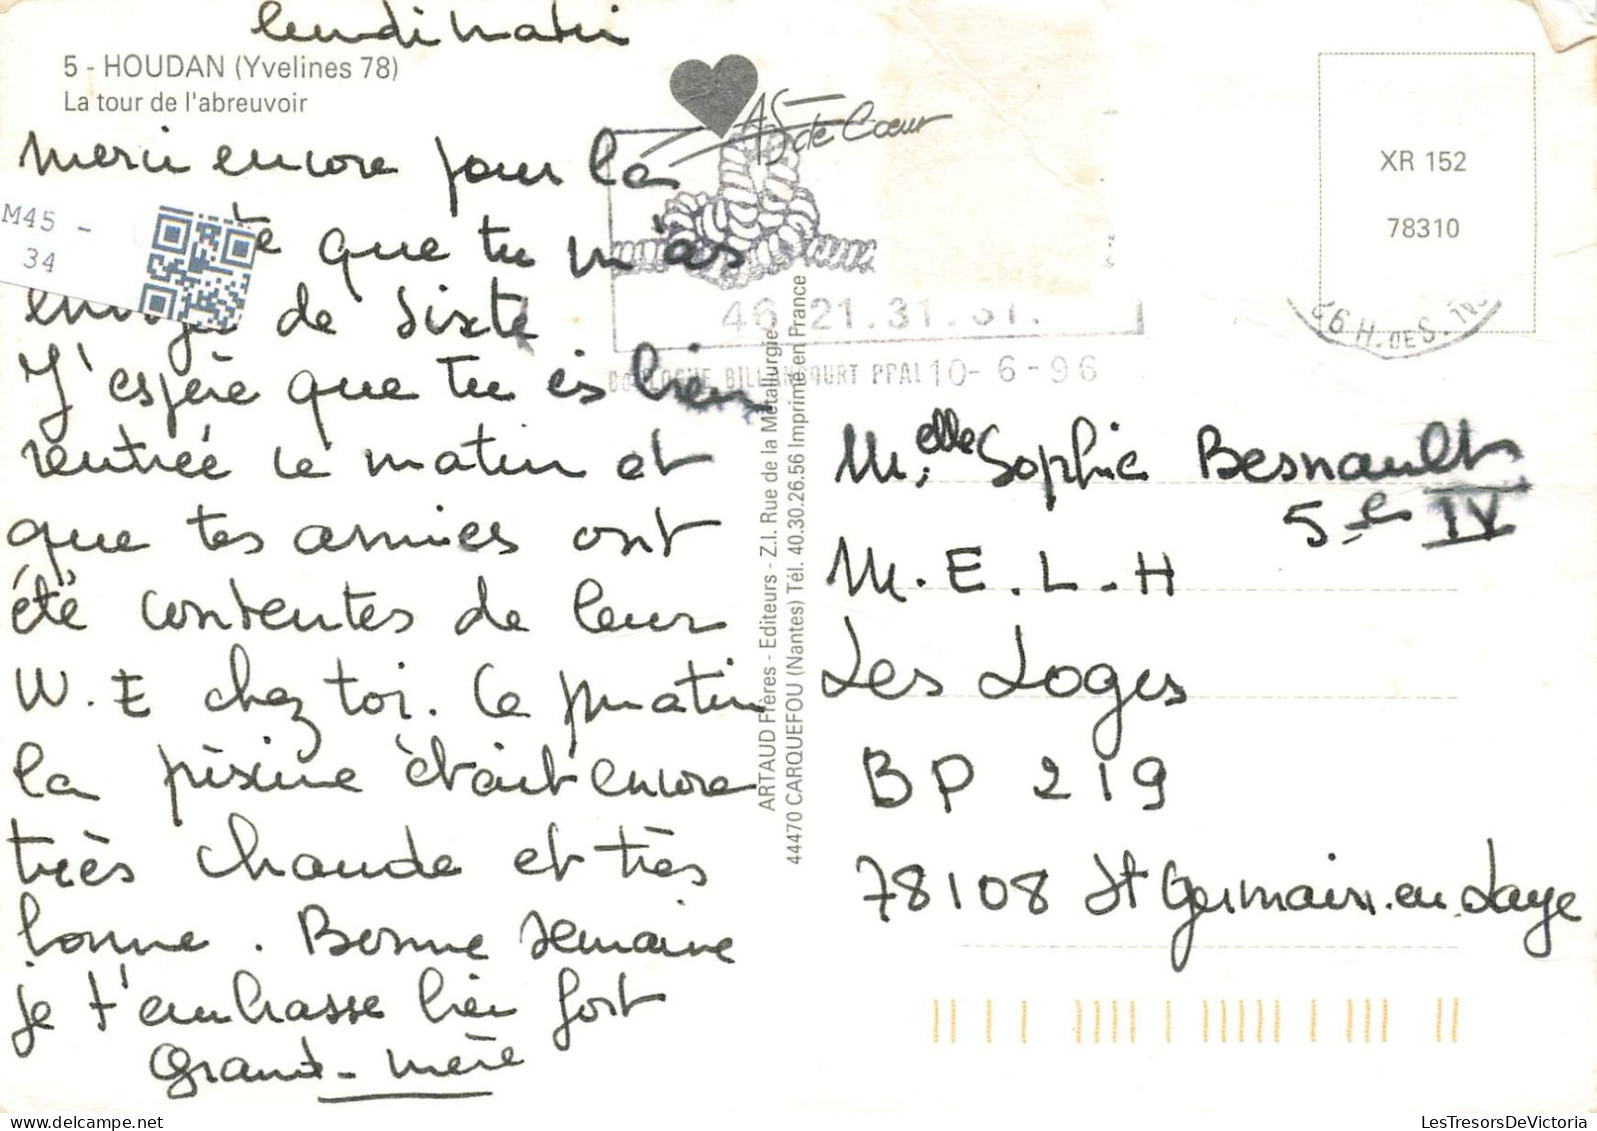 lundi matin
5 - HOUDAN (Yvelines 78)
La tour de l'abreuvoir
merci encore pour la
que tu m'as
envoyée de Sixte
J'espère que tu es bien
rentrée ce matin et
que tes amies ont
été contentes de leur
W.E chez toi. Ce matin
la piscine était encore
très chaude et très
bonne. Bonne semaine
je t'embrasse bien fort
Grand-mère
M45 -
34
AS de Cœur
46.21.31.31.
BOULOGNE BILLANCOURT PPAL 10-6-96
ARTAUD Frères - Editeurs - Z.I. Rue de la Métallurgie
44470 CARQUEFOU (Nantes) Tél. 40.30.26.56 Imprimé en France
XR 152
78310
H. DE S.
Melle Sophie Besnault
5e IV
M.E.L.H
Les Loges
BP 219
78108 St Germain.en.Laye
LesTresorsDeVictoria